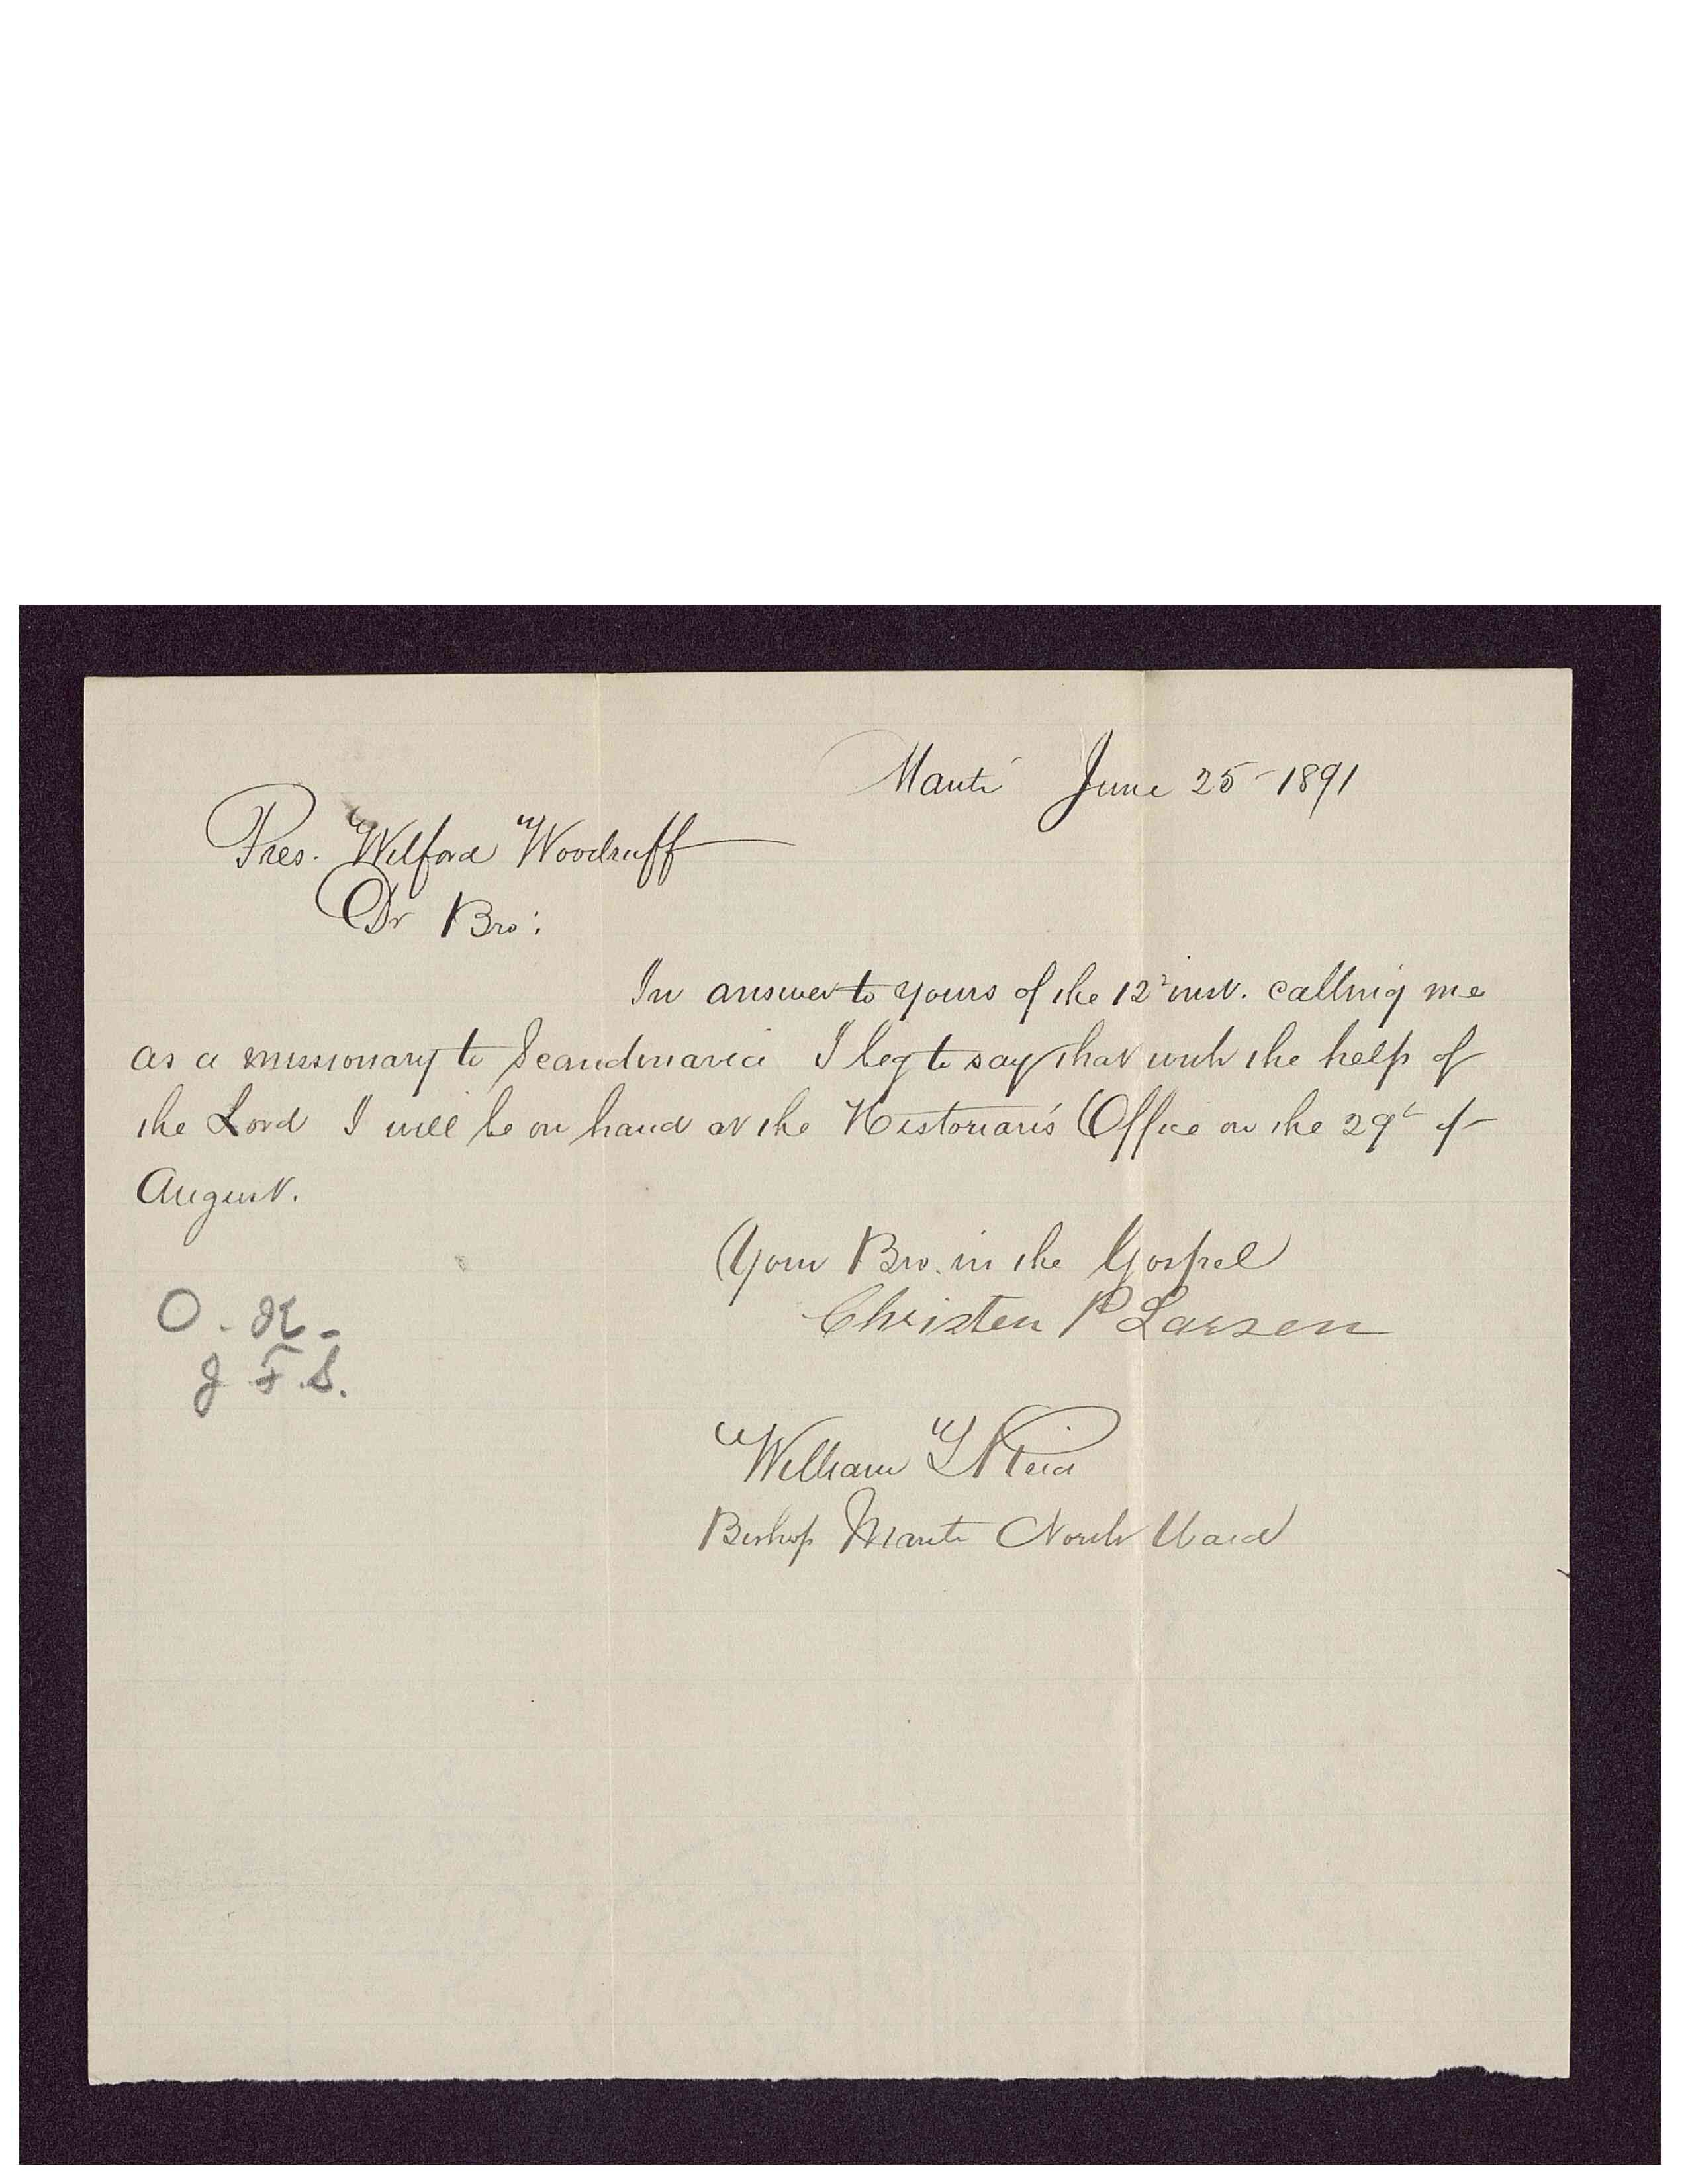 Manti June 25-1891
Pres. Wilford Woodruff
Dr Bro:
In answer to yours of the 12" inst. calling me
as a missionary to Scandinavia I beg to say that with the help of
the Lord I will be on hand at the Historian's Office on the 29t of
August.
Your Bro. in the Gospel
Christen P Larsen
O. K.
J F. S.
William T Reid
Bishop Manti North Ward